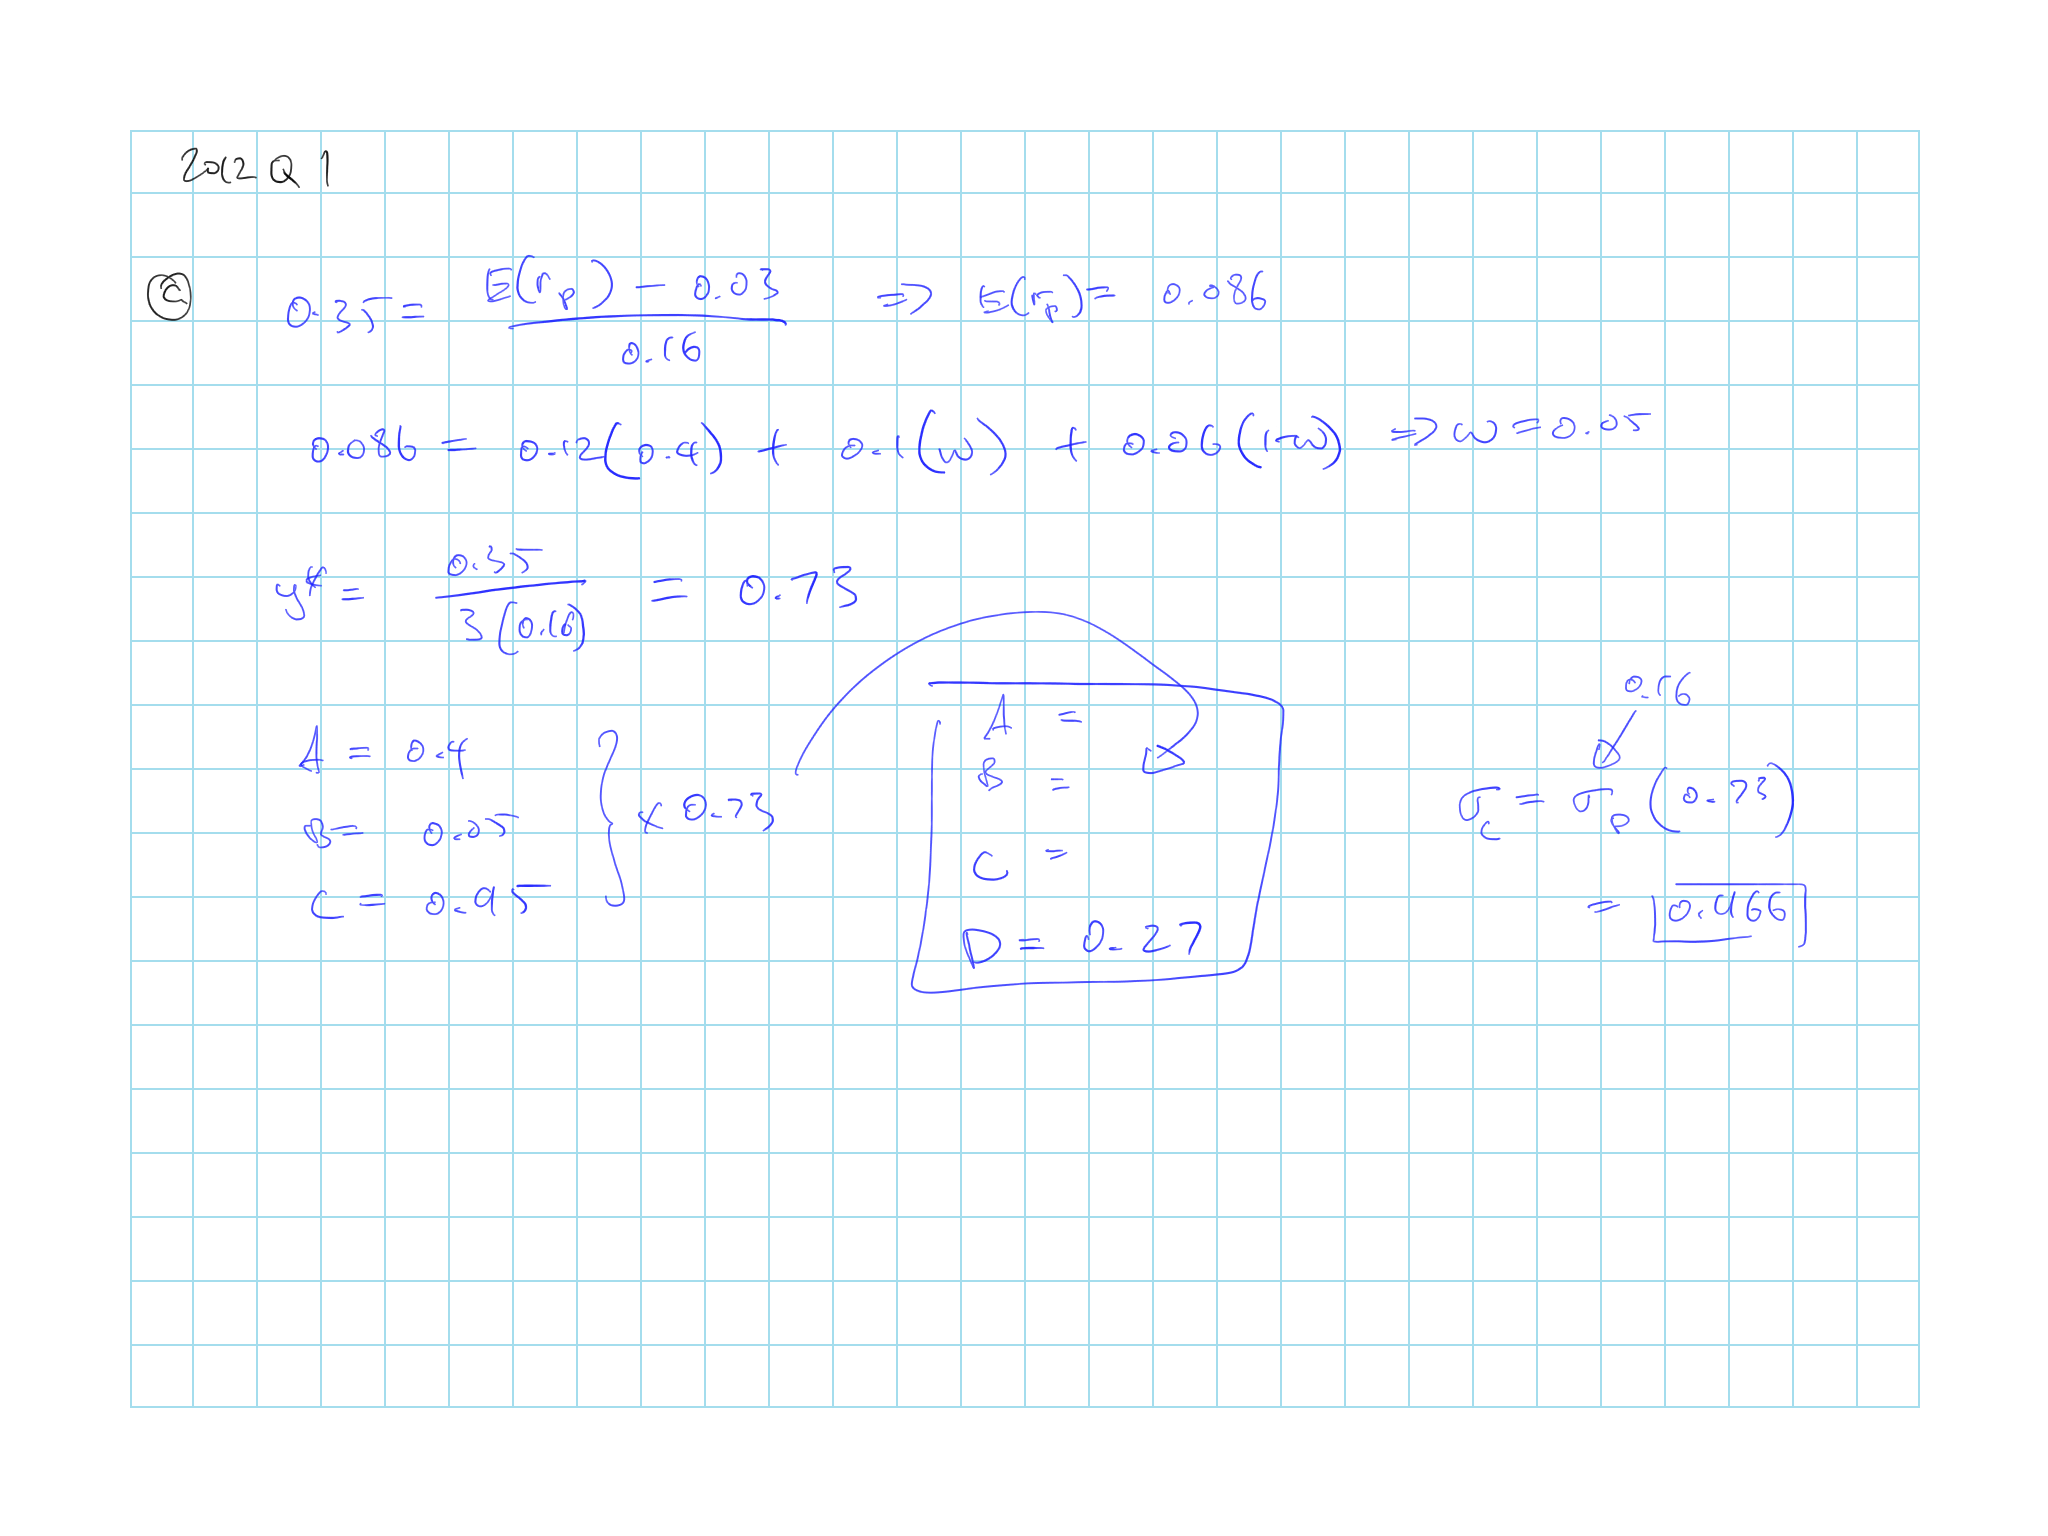 2012 Q 1
(a) 0.35 = E(rp) - 0.03 / 0.16 => E(rp) = 0.086
0.086 = 0.12(0.4) + 0.1(w) + 0.06(1-w) => w = 0.05
y* = 0.35 / 3(0.16) = 0.73
A = 0.4
B = 0.05
C = 0.95
} x 0.73
A =
B =
C =
D = 0.27
0.16
σc = σp (0.73)
= 0.466